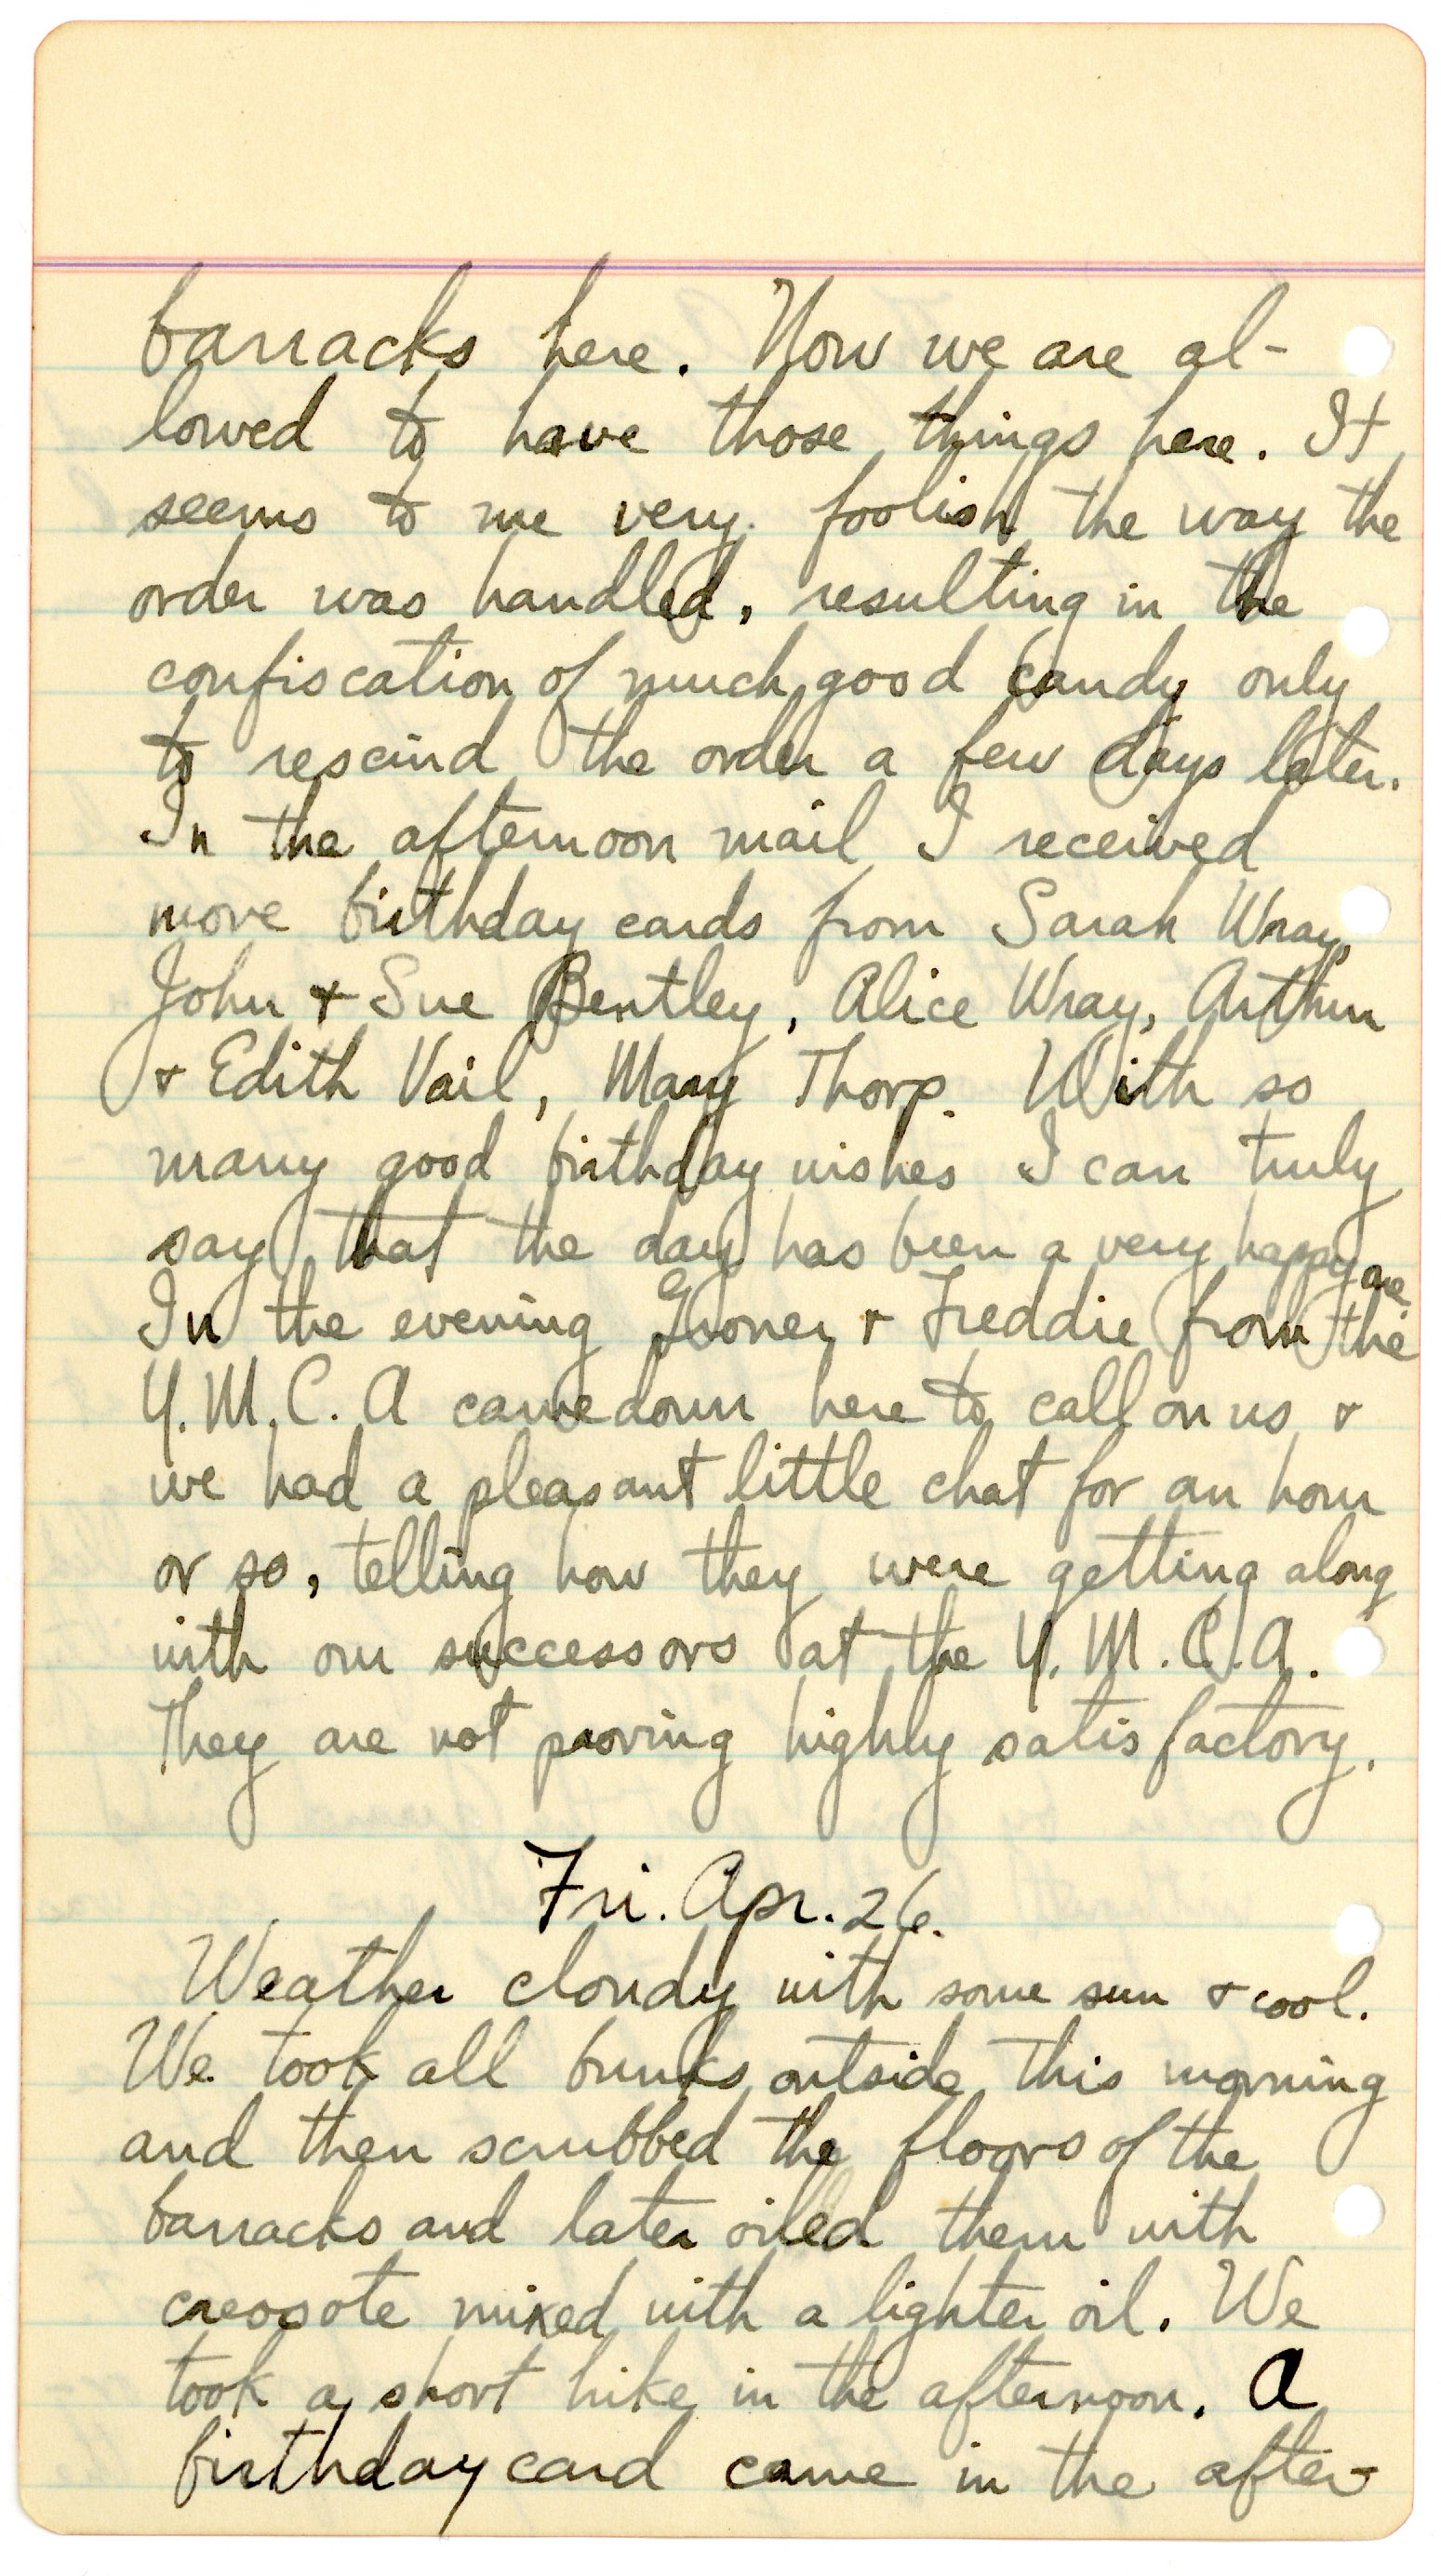 barracks here. Now we are al-
lowed to have those things here. It
seems to me very foolish the way the
order was handled, resulting in the
confiscation of much good candy only
to rescind the order a few days later.
In the afternoon mail I received
more birthday cards from Sarah Wray,
John + Sue Bentley, Alice Wray, Arthur
+ Edith Vail, Mary Thorp. With so
many good birthday wishes I can truly
say that the day has been a very happy one.
In the evening + Freddie from the
Y.M.C.A came down here to call on us +
we had a pleasant little chat for an hour
or so, telling how they were getting along
with our successors at the Y.M.C.A.
They are not proving highly satisfactory.
Fri. Apr. 26.
Weather cloudy with some sun + cool.
We took all bunks outside this morning
and then scrubbed the floors of the
barracks and later oiled them with
creosote mixed with a lighter oil. We
took a short hike in the afternoon. A
birthday card came in the after-